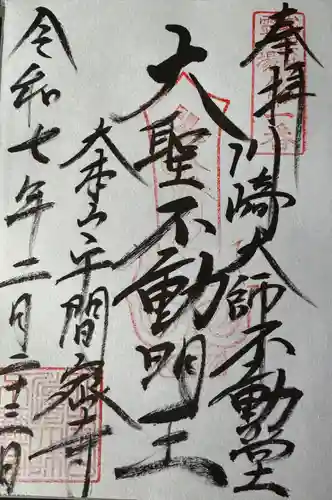 奉拝
川崎大師不動堂
大聖不動明王
大本山平間寺
令和七年二月二十二日